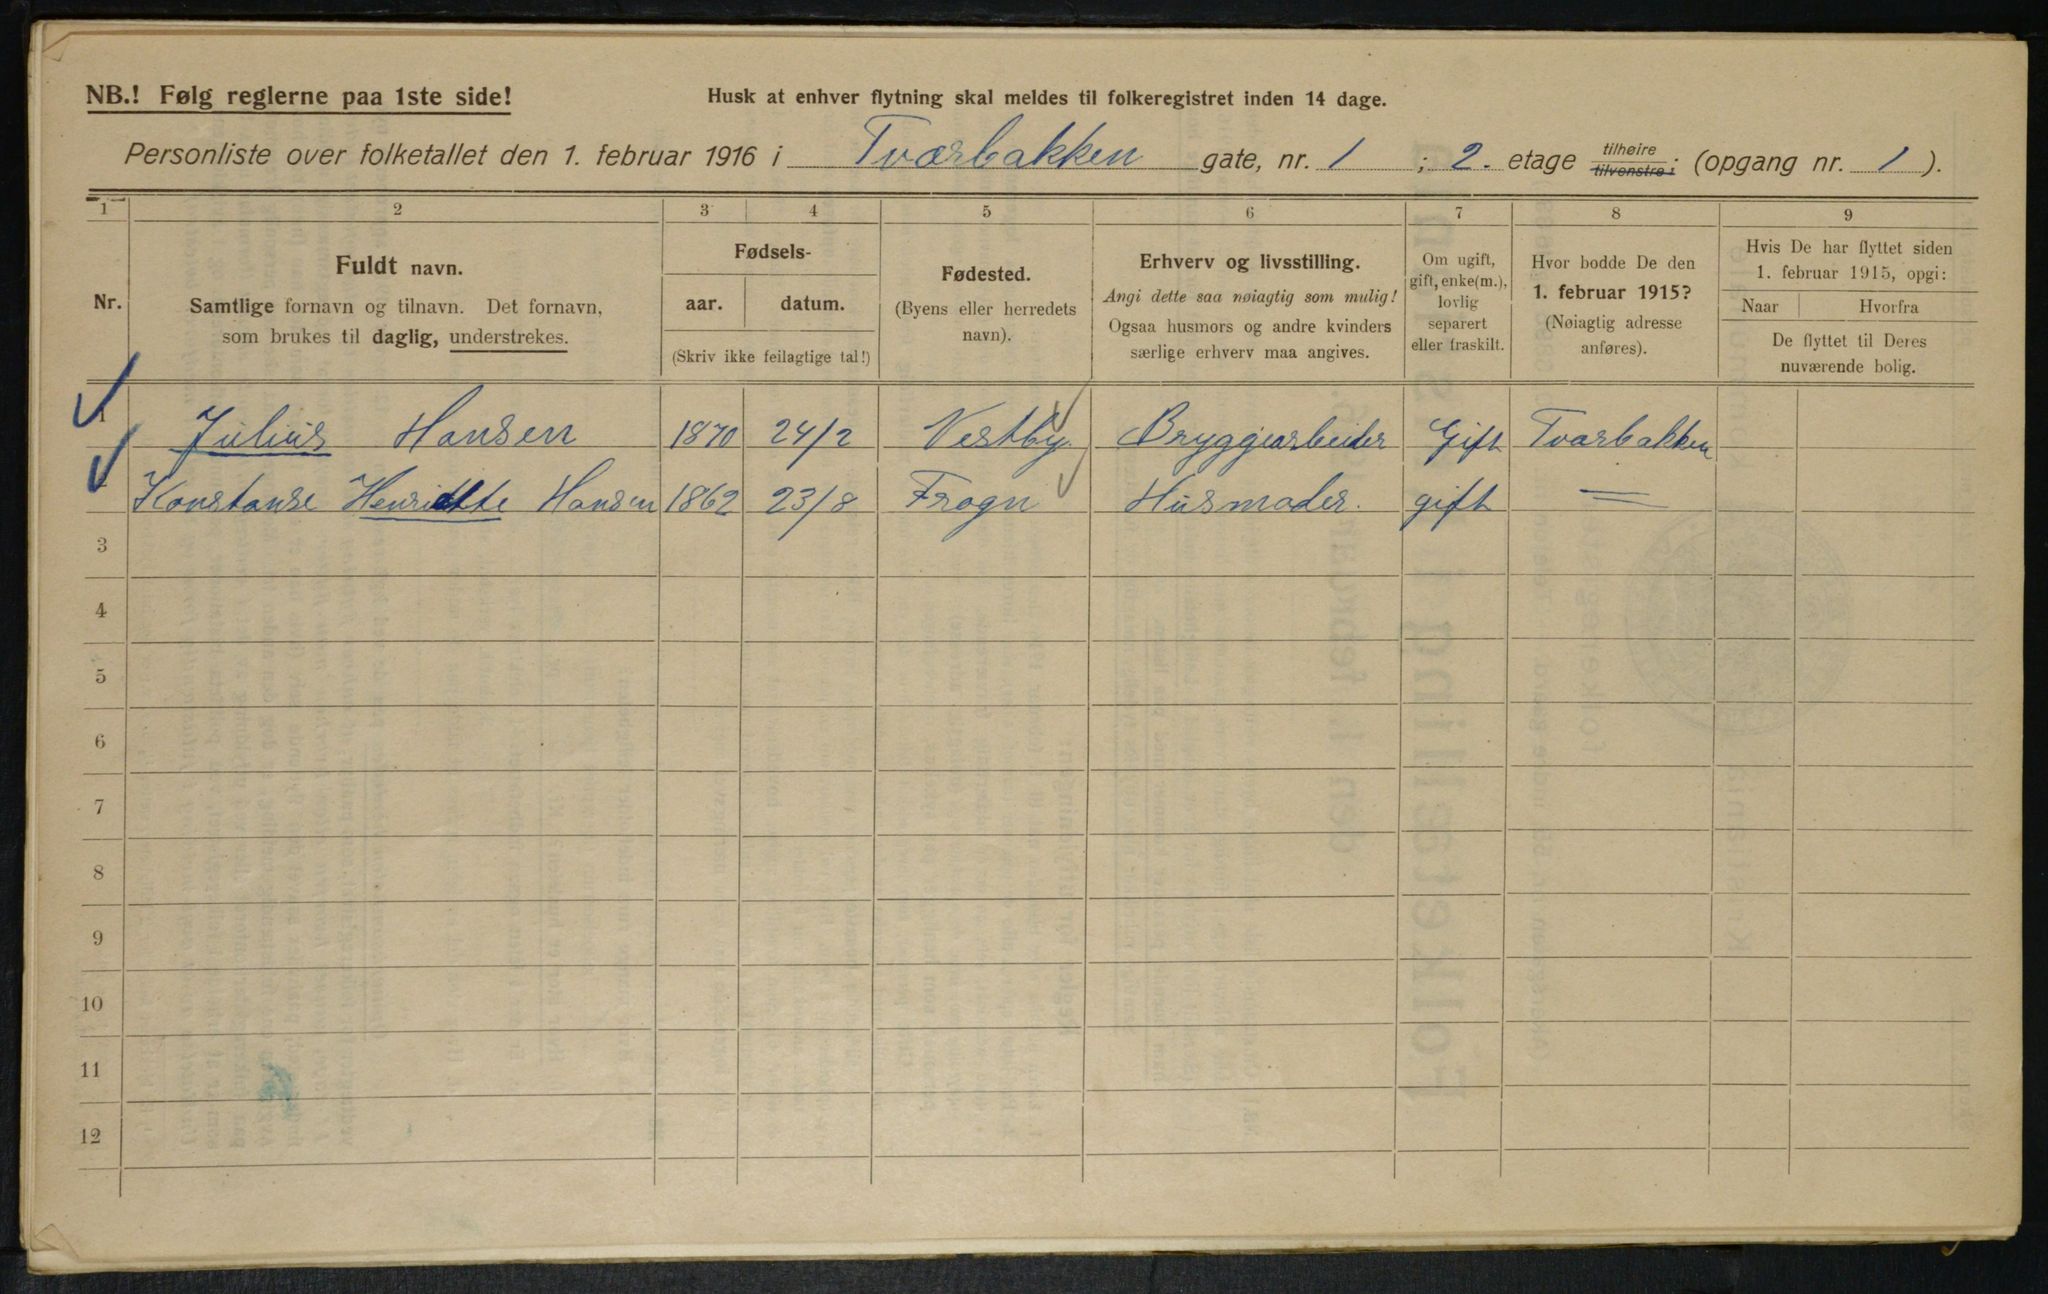 NB.! Følg reglerne paa 1ste side!
Husk at enhver flytning skal meldes til folkeregistret inden 14 dage.
Personliste over folketallet den 1. februar 1916 i Tværbakken gate, nr. 1 ; 2. etage tilhøire tilvenstre: (opgang nr. 1 ).
1 2 3 4 5 6 7 8 9
Nr.
Fuldt navn.
Samtlige fornavn og tilnavn. Det fornavn,
som brukes til daglig, understrekes.
Fødsels-
aar. datum.
(Skriv ikke feilagtige tal!)
Fødested.
(Byens eller herredets
navn).
Erhverv og livsstilling.
Angi dette saa nøiagtig som mulig!
Ogsaa husmors og andre kvinders
særlige erhverv maa angives.
Om ugift,
gift, enke(m.),
lovlig
separert
eller fraskilt.
Hvor bodde De den
1. februar 1915?
(Nøiagtig adresse
anføres).
Hvis De har flyttet siden
1. februar 1915, opgi:
Naar Hvorfra
De flyttet til Deres
nuværende bolig.
1 Julius Hansen 1870 24/2 Vestby Bryggearbeider Gift Tværbakken
Konstanse Henriette Hansen 1862 23/8 Frogn Husmoder. gift =
3
4
5
6
7
8
9
10
11
12